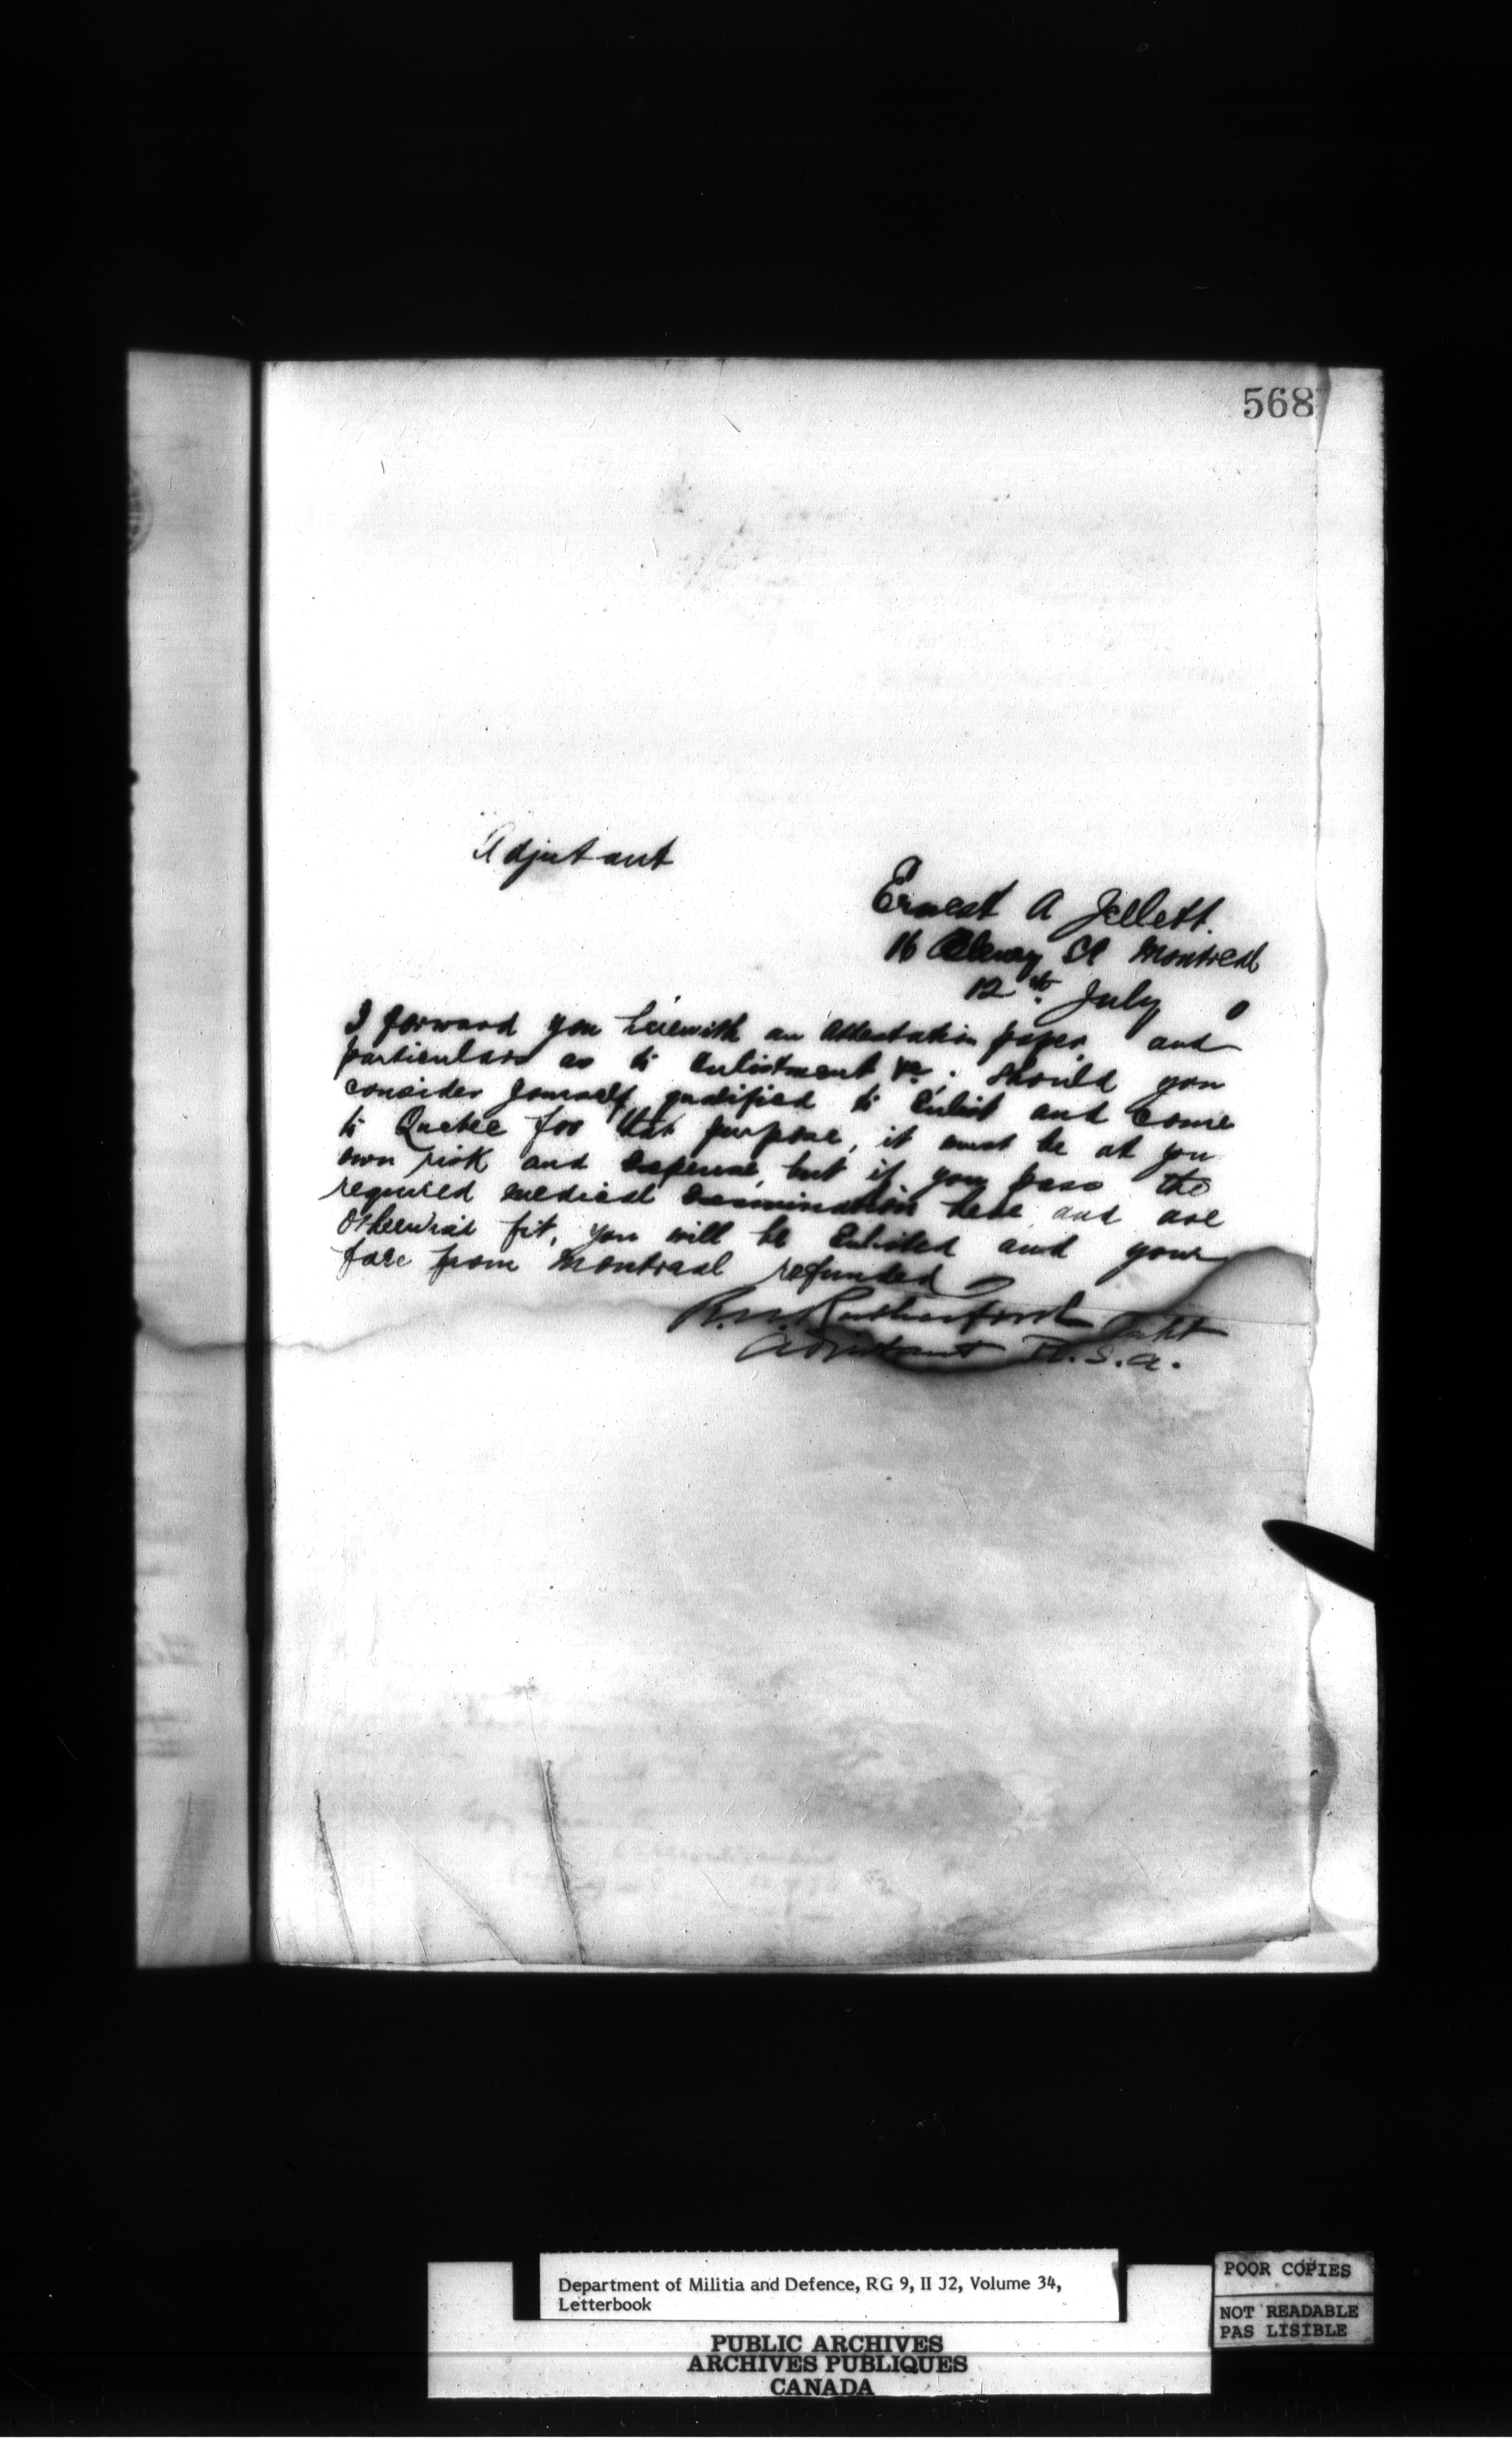 568
Adjutant
Ernest A Jellett.
16 St Montreal
12th July 0
I forward you herewith an attestation paper and
particulars as to enlistment &c. Should you
consider yourself qualified to enlist and come
to Quebec for that purpose, it must be at you
own risk and expense, but if you pass the
required medical examination here and are
otherwise fit, you will be enlisted and your
fare from Montreal refunded
R.W. Rutherford Capt
Adjutant R.S.A.
Department of Militia and Defence, RG 9, II J2, Volume 34,
Letterbook
PUBLIC ARCHIVES
ARCHIVES PUBLIQUES
CANADA
POOR COPIES
NOT READABLE
PAS LISIBLE